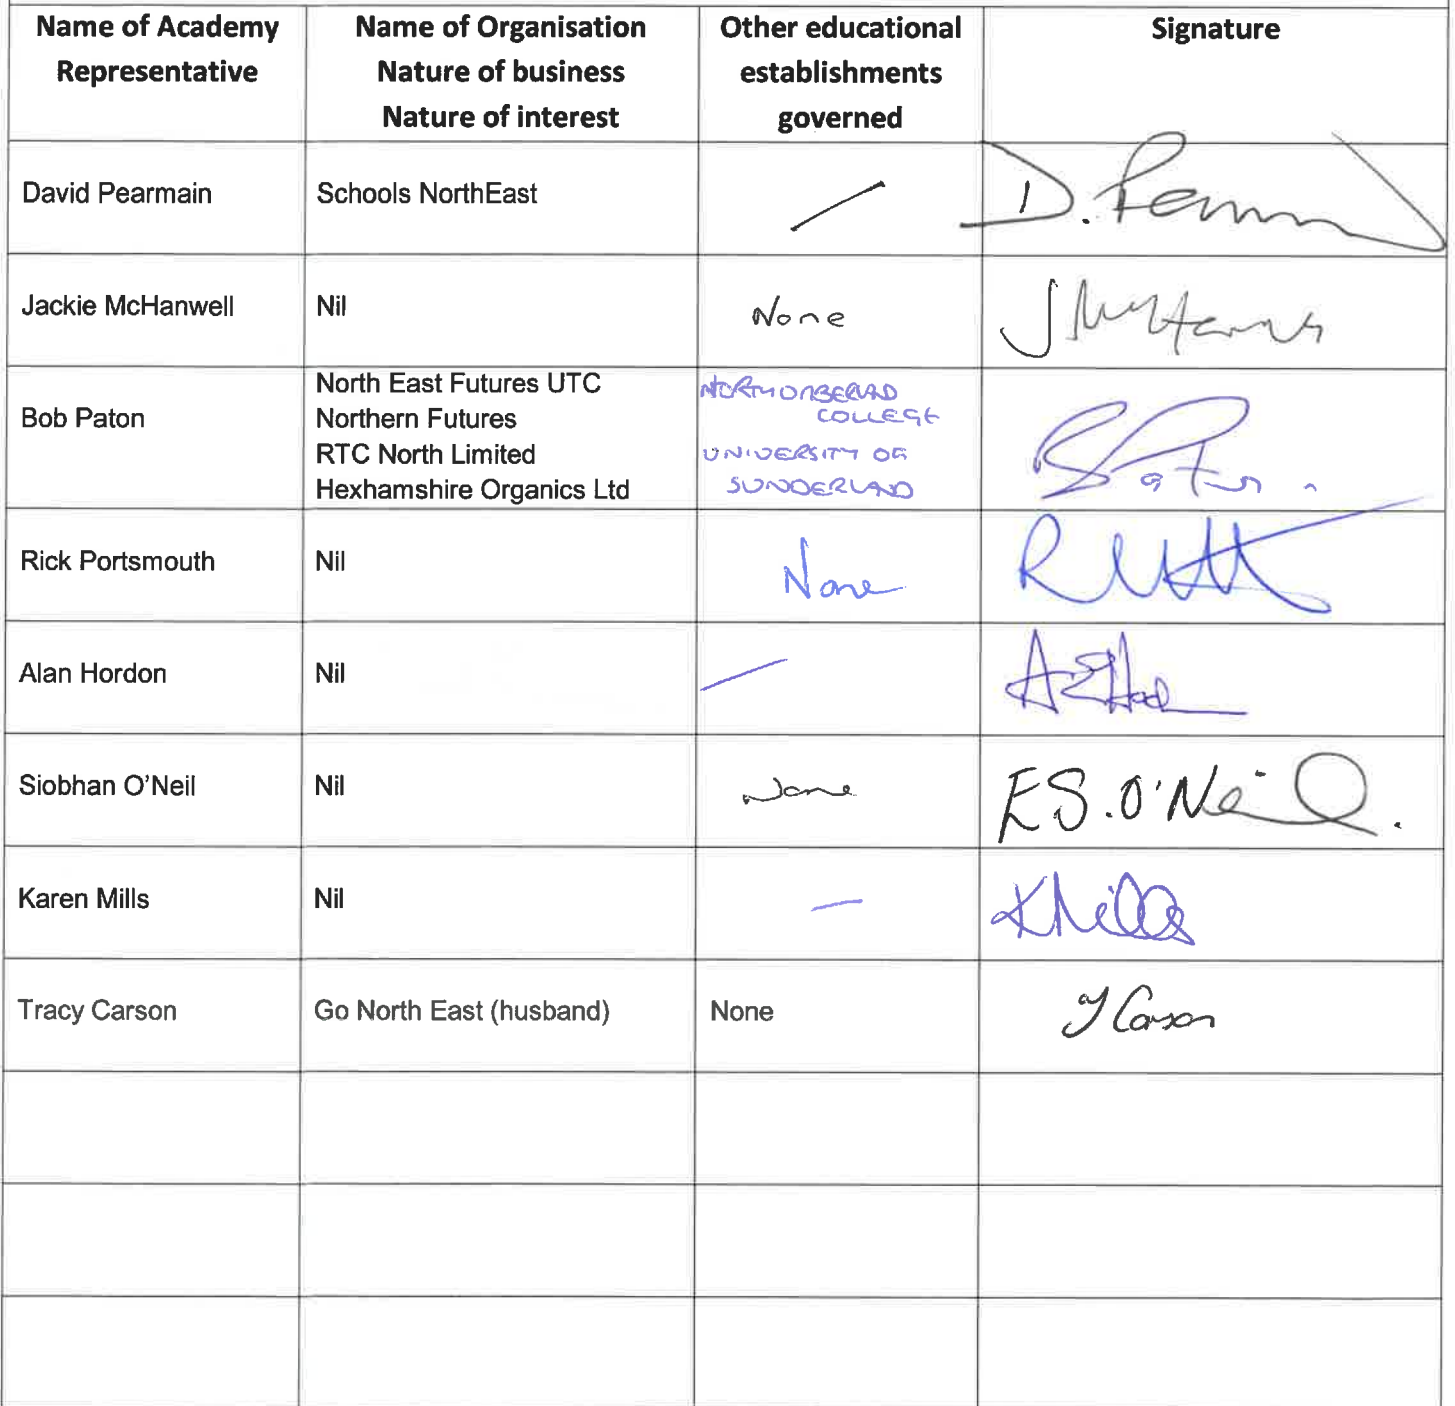 Name of Academy Representative
Name of Organisation
Nature of business
Nature of interest
Other educational establishments governed
Signature
David Pearmain
Schools NorthEast
/
Jackie McHanwell
Nil
None
Bob Paton
North East Futures UTC
Northern Futures
RTC North Limited
Hexhamshire Organics Ltd
NORTHUMBERLAND
COLLEGE
UNIVERSITY OF
SUNDERLAND
Rick Portsmouth
Nil
None
Alan Hordon
Nil
/
Siobhan O'Neil
Nil
None
E S. O'Neil.
Karen Mills
Nil
—
K Mills
Tracy Carson
Go North East (husband)
None
T Carson